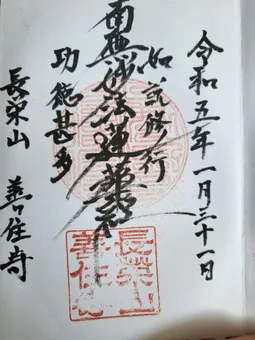 令和五年一月三十一日
如説修行
南無妙法蓮華経
功徳甚多
長栄山 善住寺
長栄山
善住寺